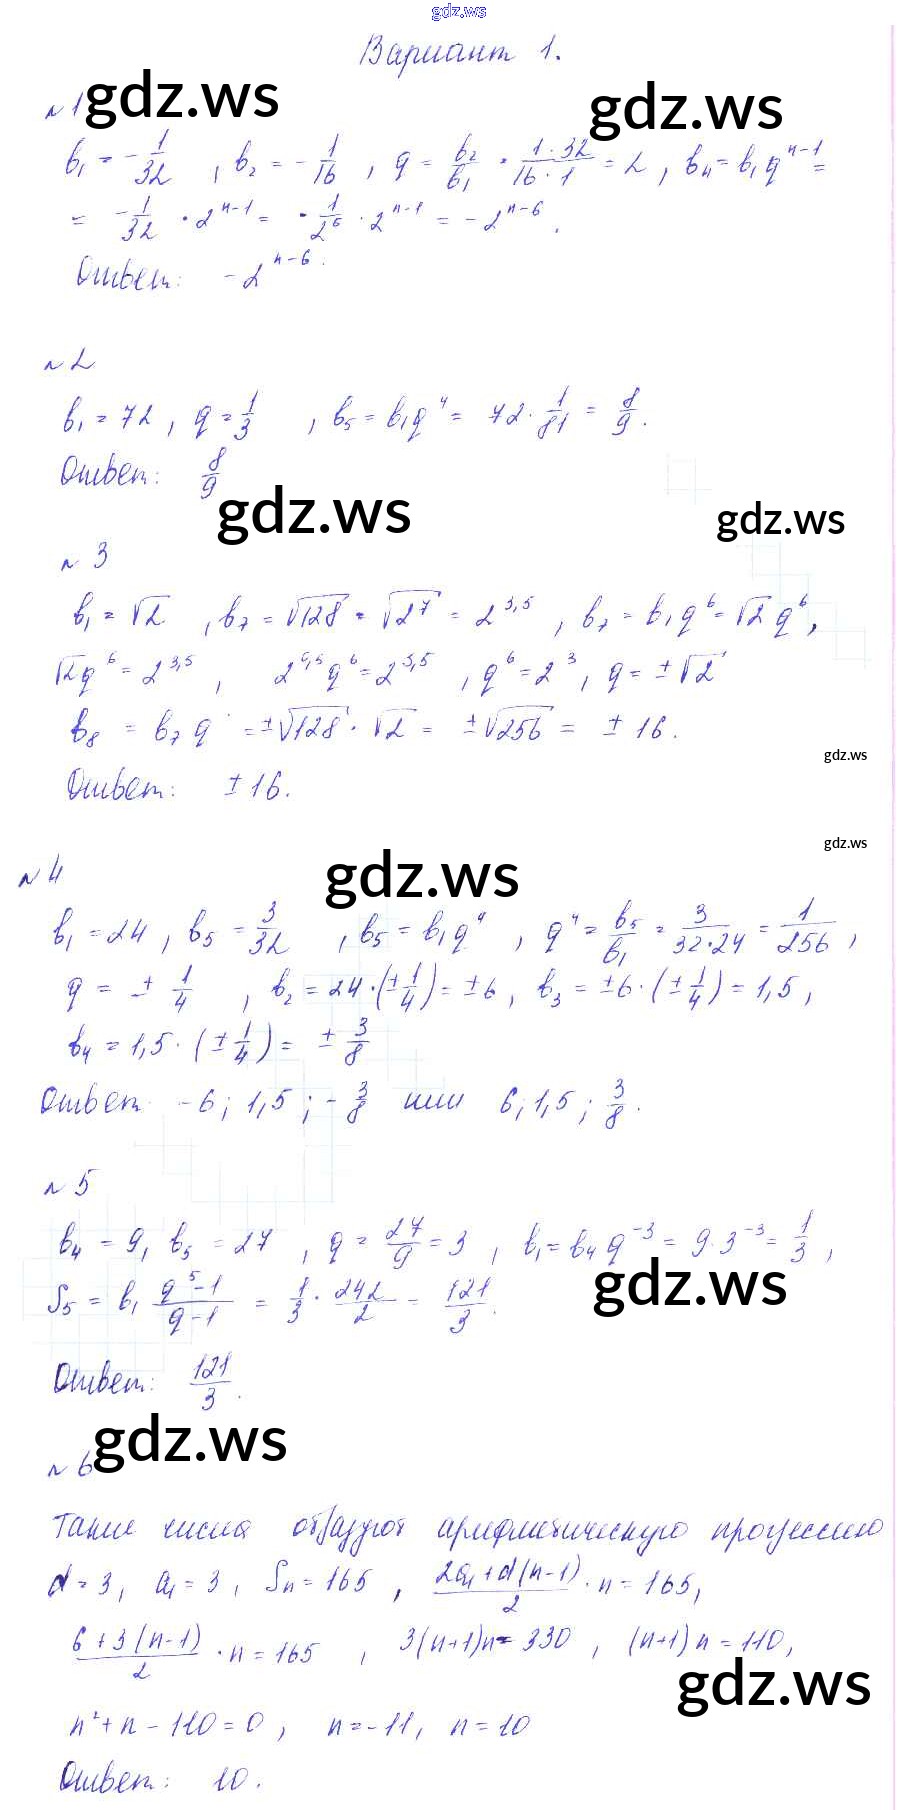 gdz.ws
Вариант 1.
№1 gdz.ws gdz.ws
b₁ = -1/32, b₂ = -1/16, q = b₂/b₁ = 1·32/16·1 = 2, bₙ = b₁qⁿ⁻¹ =
= -1/32 · 2ⁿ⁻¹ = -1/2⁵ · 2ⁿ⁻¹ = -2ⁿ⁻⁶.
Ответ: -2ⁿ⁻⁶.
№2
b₁ = 72, q = 1/3, b₅ = b₁q⁴ = 72 · 1/81 = 8/9.
Ответ: 8/9
gdz.ws gdz.ws
№ 3
b₁ = √2, b₇ = √128 = √2⁷ = 2^3,5, b₇ = b₁q⁶ = √2 q⁶,
√2q⁶ = 2^3,5, 2^0,5 q⁶ = 2^3,5, q⁶ = 2³, q = ±√2
b₈ = b₇q = ±√128 · √2 = ±√256 = ±16.
gdz.ws
Ответ: ±16.
gdz.ws
№4 gdz.ws
b₁ = 24, b₅ = 3/32, b₅ = b₁q⁴, q⁴ = b₅/b₁ = 3/32·24 = 1/256,
q = ±1/4, b₂ = 24·(±1/4) = ±6, b₃ = ±6·(±1/4) = 1,5,
b₄ = 1,5·(±1/4) = ±3/8
Ответ: -6; 1,5; -3/8 или 6; 1,5; 3/8.
№5
b₄ = 9, b₅ = 27, q = 27/9 = 3, b₁ = b₄q⁻³ = 9·3⁻³ = 1/3,
gdz.ws
S₅ = b₁ q⁵-1/q-1 = 1/3 · 242/2 = 121/3.
Ответ: 121/3.
gdz.ws
№6
Такие числа образуют арифметическую прогрессию
d = 3, a₁ = 3, Sₙ = 165, 2a₁+d(n-1)/2 · n = 165,
6+3(n-1)/2 · n = 165, 3(n+1)n = 330, (n+1)n = 110,
gdz.ws
n² + n - 110 = 0, n = -11, n = 10
Ответ: 10.